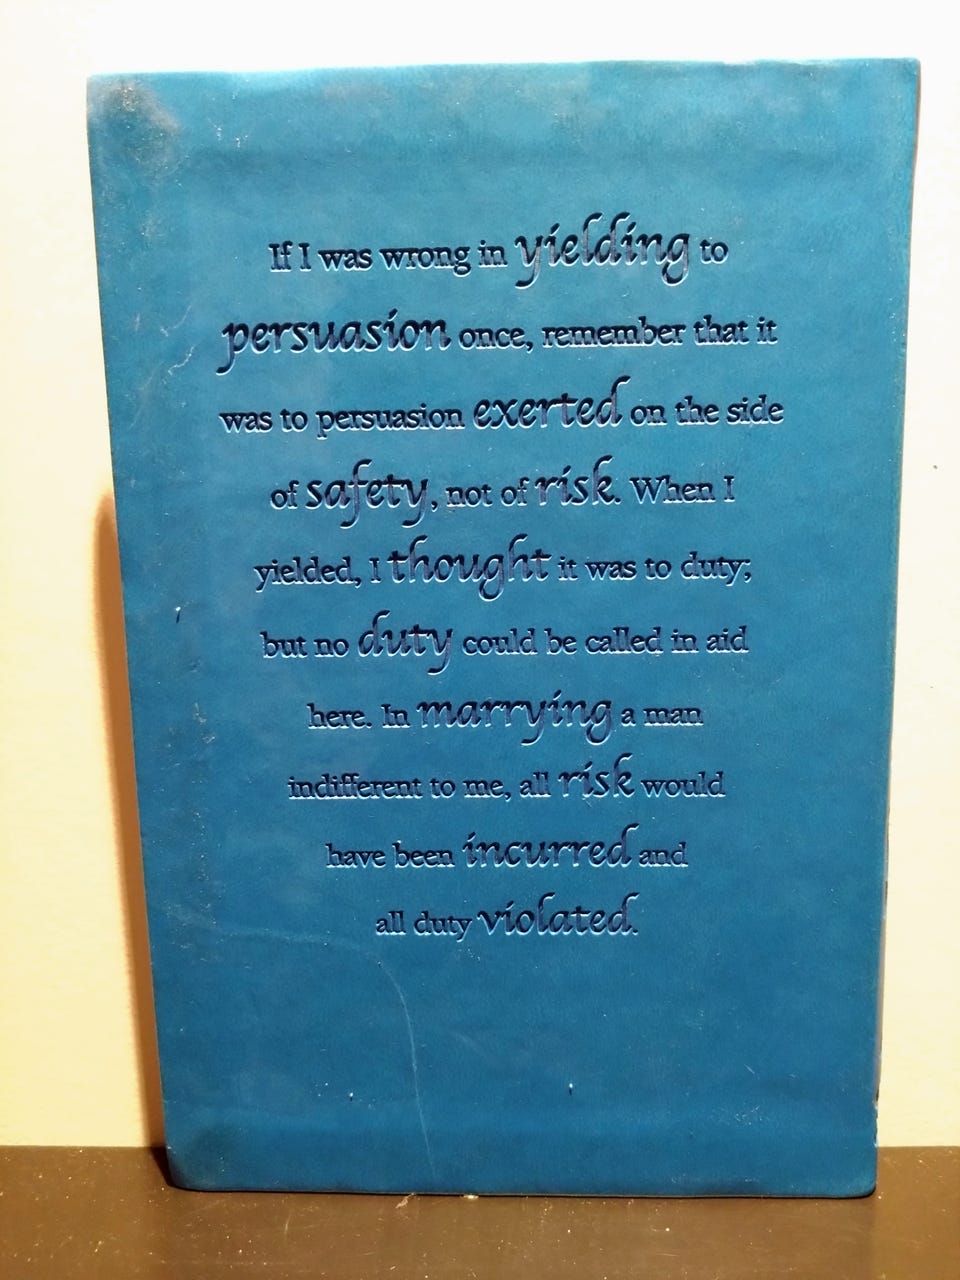 If I was wrong in yielding to
persuasion once, remember that it
was to persuasion exerted on the side
of safety, not of risk. When I
yielded, I thought it was to duty;
but no duty could be called in aid
here. In marrying a man
indifferent to me, all risk would
have been incurred and
all duty violated.